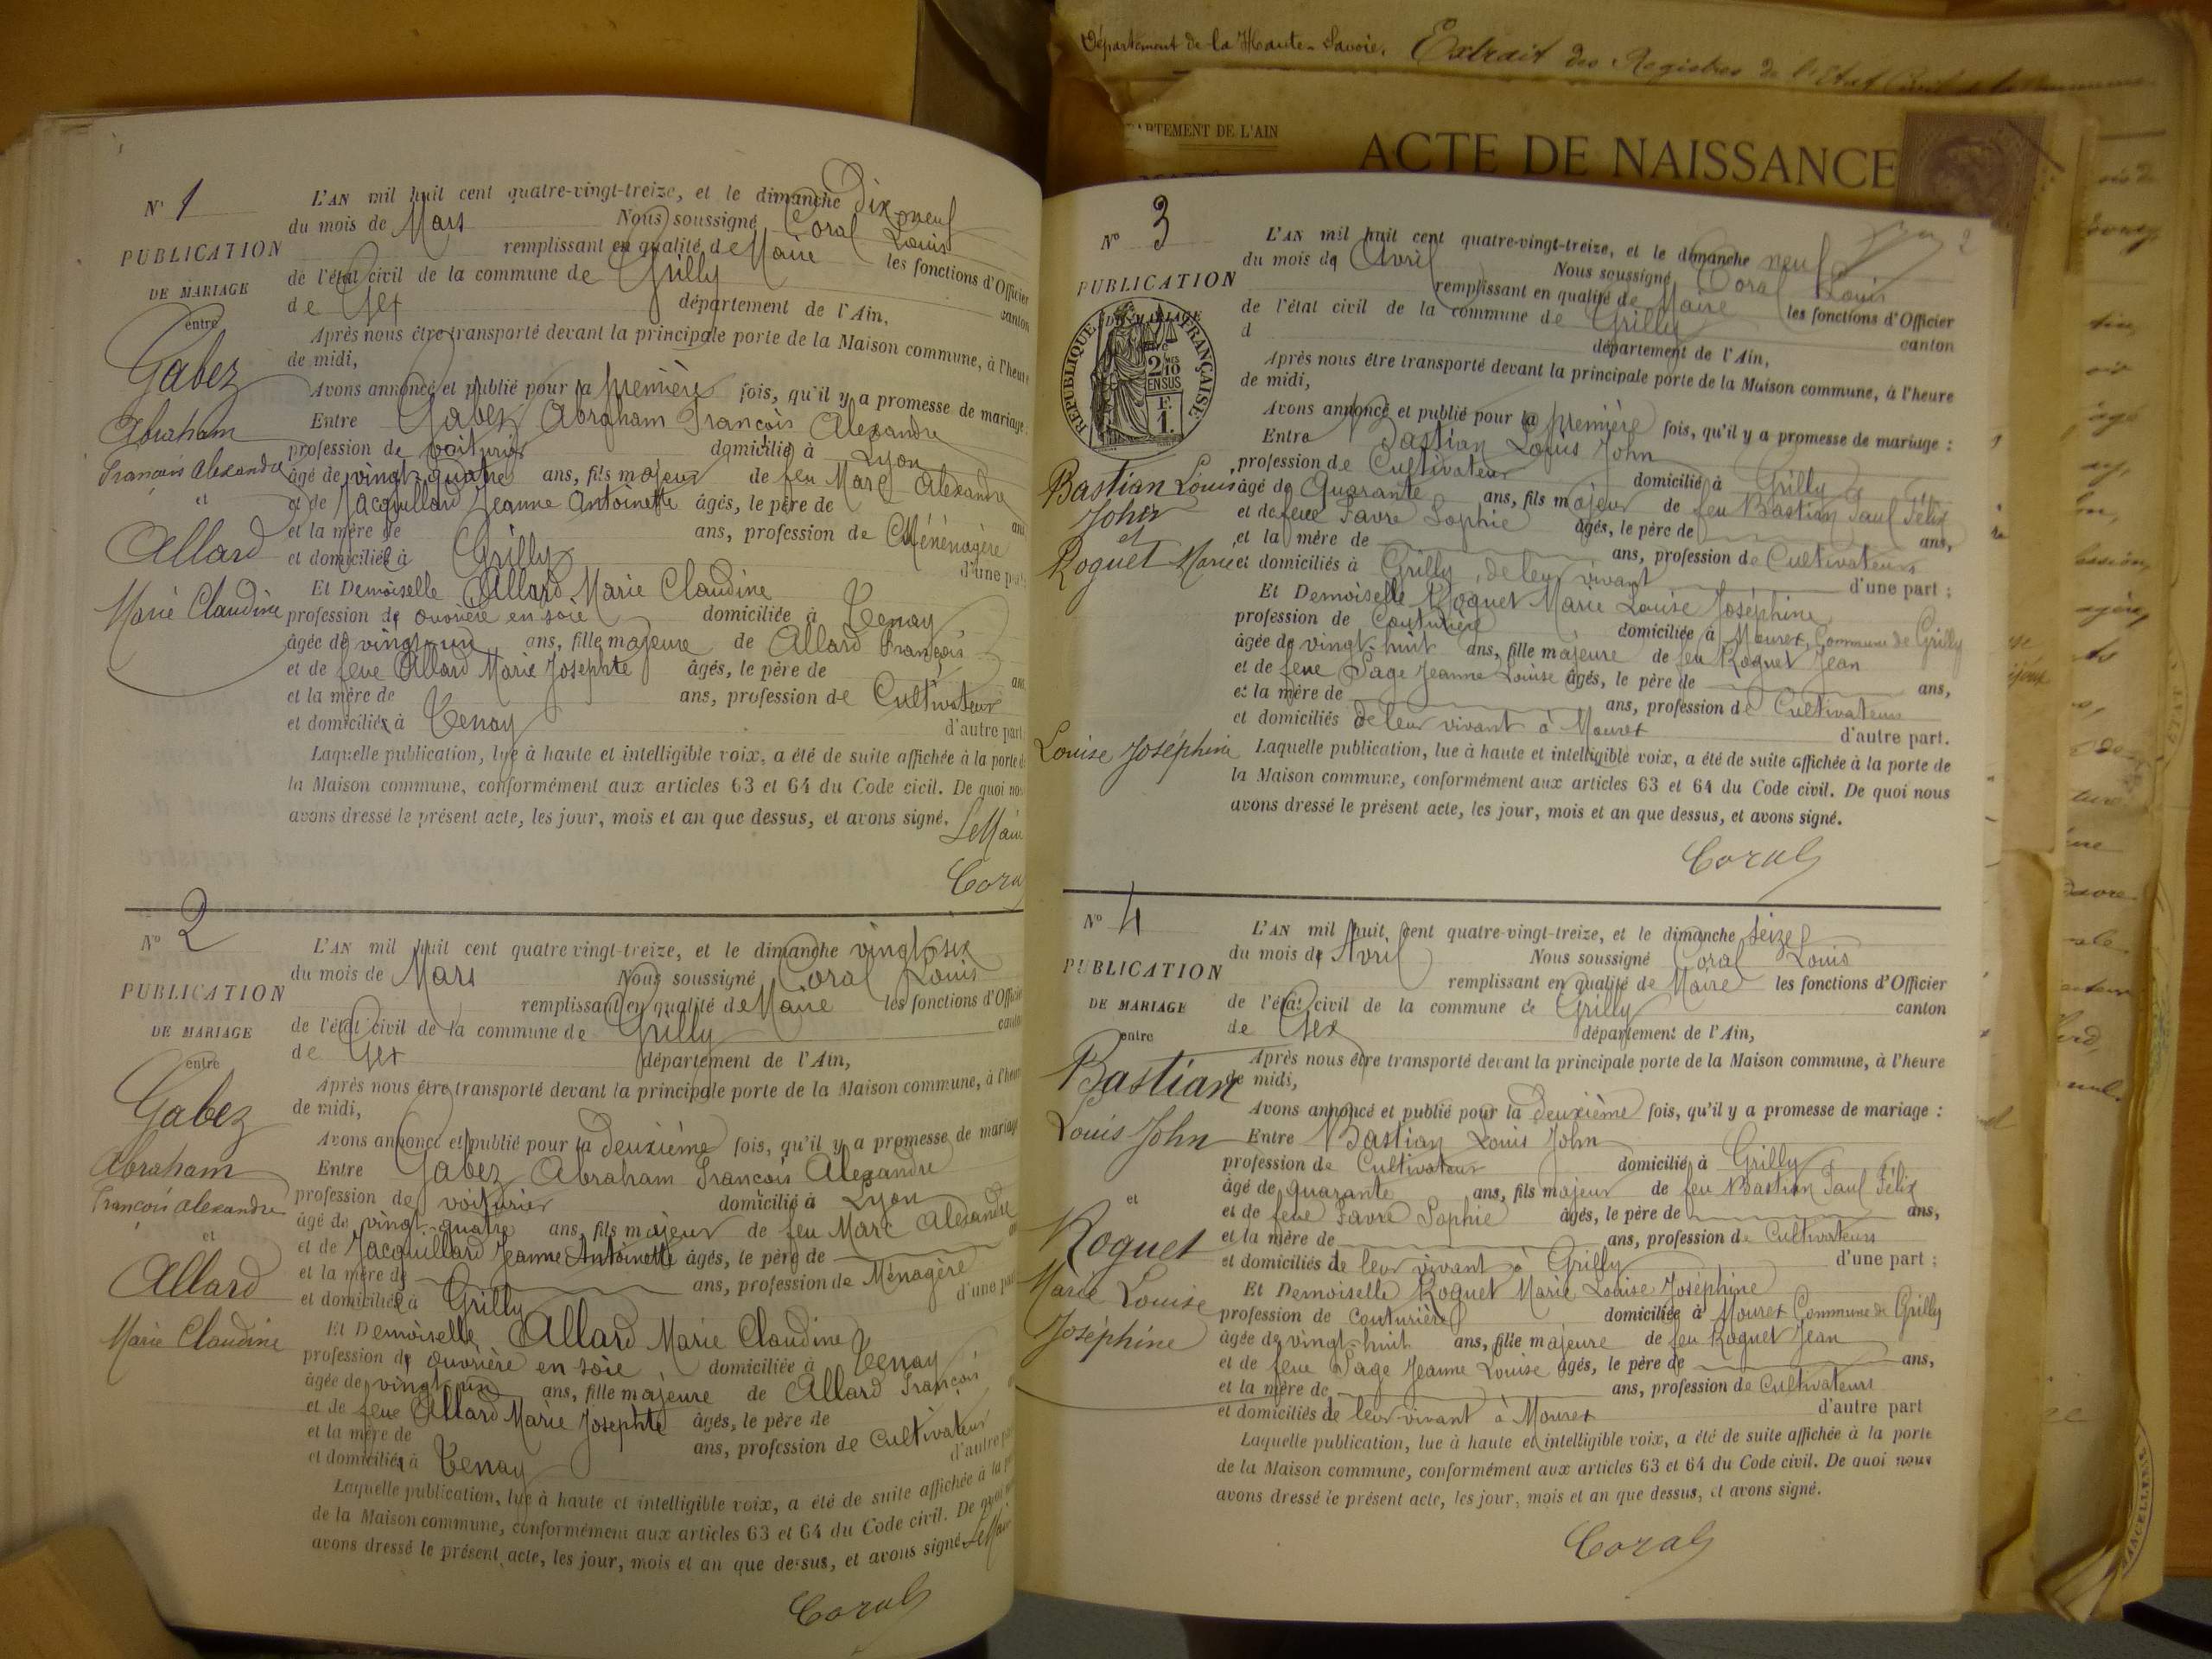 Département de la Haute-Savoie. Extrait des Registres de l'Etat Civil de la Commune
DÉPARTEMENT DE L'AIN
ACTE DE NAISSANCE
N° 1
PUBLICATION
DE MARIAGE
entre
Gabez
Abraham
François Alexandre
et
Allard
Marie Claudine
L'AN mil huit cent quatre-vingt-treize, et le dimanche Dix neuf
du mois de Mars Nous soussigné Coral Louis
remplissant en qualité de Maire les fonctions d'Officier
de l'état civil de la commune de Grilly canton
de Gex département de l'Ain,
Après nous être transporté devant la principale porte de la Maison commune, à l'heure
de midi,
Avons annoncé et publié pour la première fois, qu'il y a promesse de mariage :
Entre Gabez Abraham François Alexandre
profession de voiturier domicilié à Lyon
âgé de vingt-quatre ans, fils majeur de feu Marc Alexandre
et de Jacquillard Jeanne Antoinette âgés, le père de ans
et la mère de ans, profession de Ménénagère
et domiciliée à Grilly d'une part
Et Demoiselle Allard Marie Claudine
profession de ouvrière en soie domiciliée à Tenay
âgée de vingt-un ans, fille majeure de Allard François
et de feue Allard Marie Josephte âgés, le père de ans
et la mère de ans, profession de Cultivateur
et domiciliés à Tenay d'autre part
Laquelle publication, lue à haute et intelligible voix, a été de suite affichée à la porte de
la Maison commune, conformément aux articles 63 et 64 du Code civil. De quoi nous
avons dressé le présent acte, les jour, mois et an que dessus, et avons signé. Le Maire
Coral
N° 2
PUBLICATION
DE MARIAGE
entre
Gabez
Abraham
François Alexandre
et
Allard
Marie Claudine
L'AN mil huit cent quatre-vingt-treize, et le dimanche vingt six
du mois de Mars Nous soussigné Coral Louis
remplissant en qualité de Maire les fonctions d'Officier
de l'état civil de la commune de Grilly canton
de Gex département de l'Ain,
Après nous être transporté devant la principale porte de la Maison commune, à l'heure
de midi,
Avons annoncé et publié pour la Deuxième fois, qu'il y a promesse de mariage
Entre Gabez Abraham François Alexandre
profession de voiturier domicilié à Lyon
âgé de vingt-quatre ans, fils majeur de feu Marc Alexandre
et de Jacquillard Jeanne Antoinette âgés, le père de
et la mère de ans, profession de Ménagère
et domiciliée à Grilly d'une part
Et Demoiselle Allard Marie Claudine
profession de ouvrière en soie domiciliée à Tenay
âgée de vingt un ans, fille majeure de Allard François
et de feue Allard Marie Josephte âgés, le père de
et la mère de ans, profession de Cultivateur
et domiciliés à Tenay d'autre part
Laquelle publication, lue à haute et intelligible voix, a été de suite affichée à la porte
de la Maison commune, conformément aux articles 63 et 64 du Code civil. De quoi nous
avons dressé le présent acte, les jour, mois et an que dessus, et avons signé Le Maire
Coral
2
N° 3
PUBLICATION
DE MARIAGE
RÉPUBLIQUE FRANÇAISE
2/10
EN SUS
F.
1.
Bastian Louis
John
et
Roguet Marie
Louise Joséphine
L'AN mil huit cent quatre-vingt-treize, et le dimanche neuf
du mois de Avril Nous soussigné Coral Louis
remplissant en qualité de Maire les fonctions d'Officier
de l'état civil de la commune de Grilly canton
d département de l'Ain,
Après nous être transporté devant la principale porte de la Maison commune, à l'heure
de midi,
Avons annoncé et publié pour la première fois, qu'il y a promesse de mariage :
Entre Bastian Louis John
profession de Cultivateur domicilié à Grilly
âgé de Quarante ans, fils majeur de feu Bastian Paul Félix
et de feue Favre Sophie âgés, le père de ans,
et la mère de ans, profession de Cultivateurs
et domiciliés à Grilly, de leur vivant d'une part ;
Et Demoiselle Roguet Marie Louise Joséphine
profession de Couturière domiciliée à Mourex, Commune de Grilly
âgée de vingt-huit ans, fille majeure de feu Roguet Jean
et de feue Page Jeanne Louise âgés, le père de ans,
et la mère de ans, profession de Cultivateurs
et domiciliés de leur vivant à Mourex d'autre part.
Laquelle publication, lue à haute et intelligible voix, a été de suite affichée à la porte de
la Maison commune, conformément aux articles 63 et 64 du Code civil. De quoi nous
avons dressé le présent acte, les jour, mois et an que dessus, et avons signé.
Coral
N° 4
PUBLICATION
DE MARIAGE
entre
Bastian
Louis John
et
Roguet
Marie Louise
Joséphine
L'AN mil huit cent quatre-vingt-treize, et le dimanche seize
du mois de Avril Nous soussigné Coral Louis
remplissant en qualité de Maire les fonctions d'Officier
de l'état civil de la commune de Grilly canton
de Gex département de l'Ain,
Après nous être transporté devant la principale porte de la Maison commune, à l'heure
de midi,
Avons annoncé et publié pour la Deuxième fois, qu'il y a promesse de mariage :
Entre Bastian Louis John
profession de Cultivateur domicilié à Grilly
âgé de quarante ans, fils majeur de feu Bastian Paul Félix
et de feue Favre Sophie âgés, le père de ans,
et la mère de ans, profession de Cultivateurs
et domiciliés de leur vivant à Grilly d'une part ;
Et Demoiselle Roguet Marie Louise Joséphine
profession de couturière domiciliée à Mourex Commune de Grilly
âgée de vingt-huit ans, fille majeure de feu Roguet Jean
et de feue Page Jeanne Louise âgés, le père de ans,
et la mère de ans, profession de Cultivateurs
et domiciliés de leur vivant à Mourex d'autre part
Laquelle publication, lue à haute et intelligible voix, a été de suite affichée à la porte
de la Maison commune, conformément aux articles 63 et 64 du Code civil. De quoi nous
avons dressé le présent acte, les jour, mois et an que dessus, et avons signé.
Coral